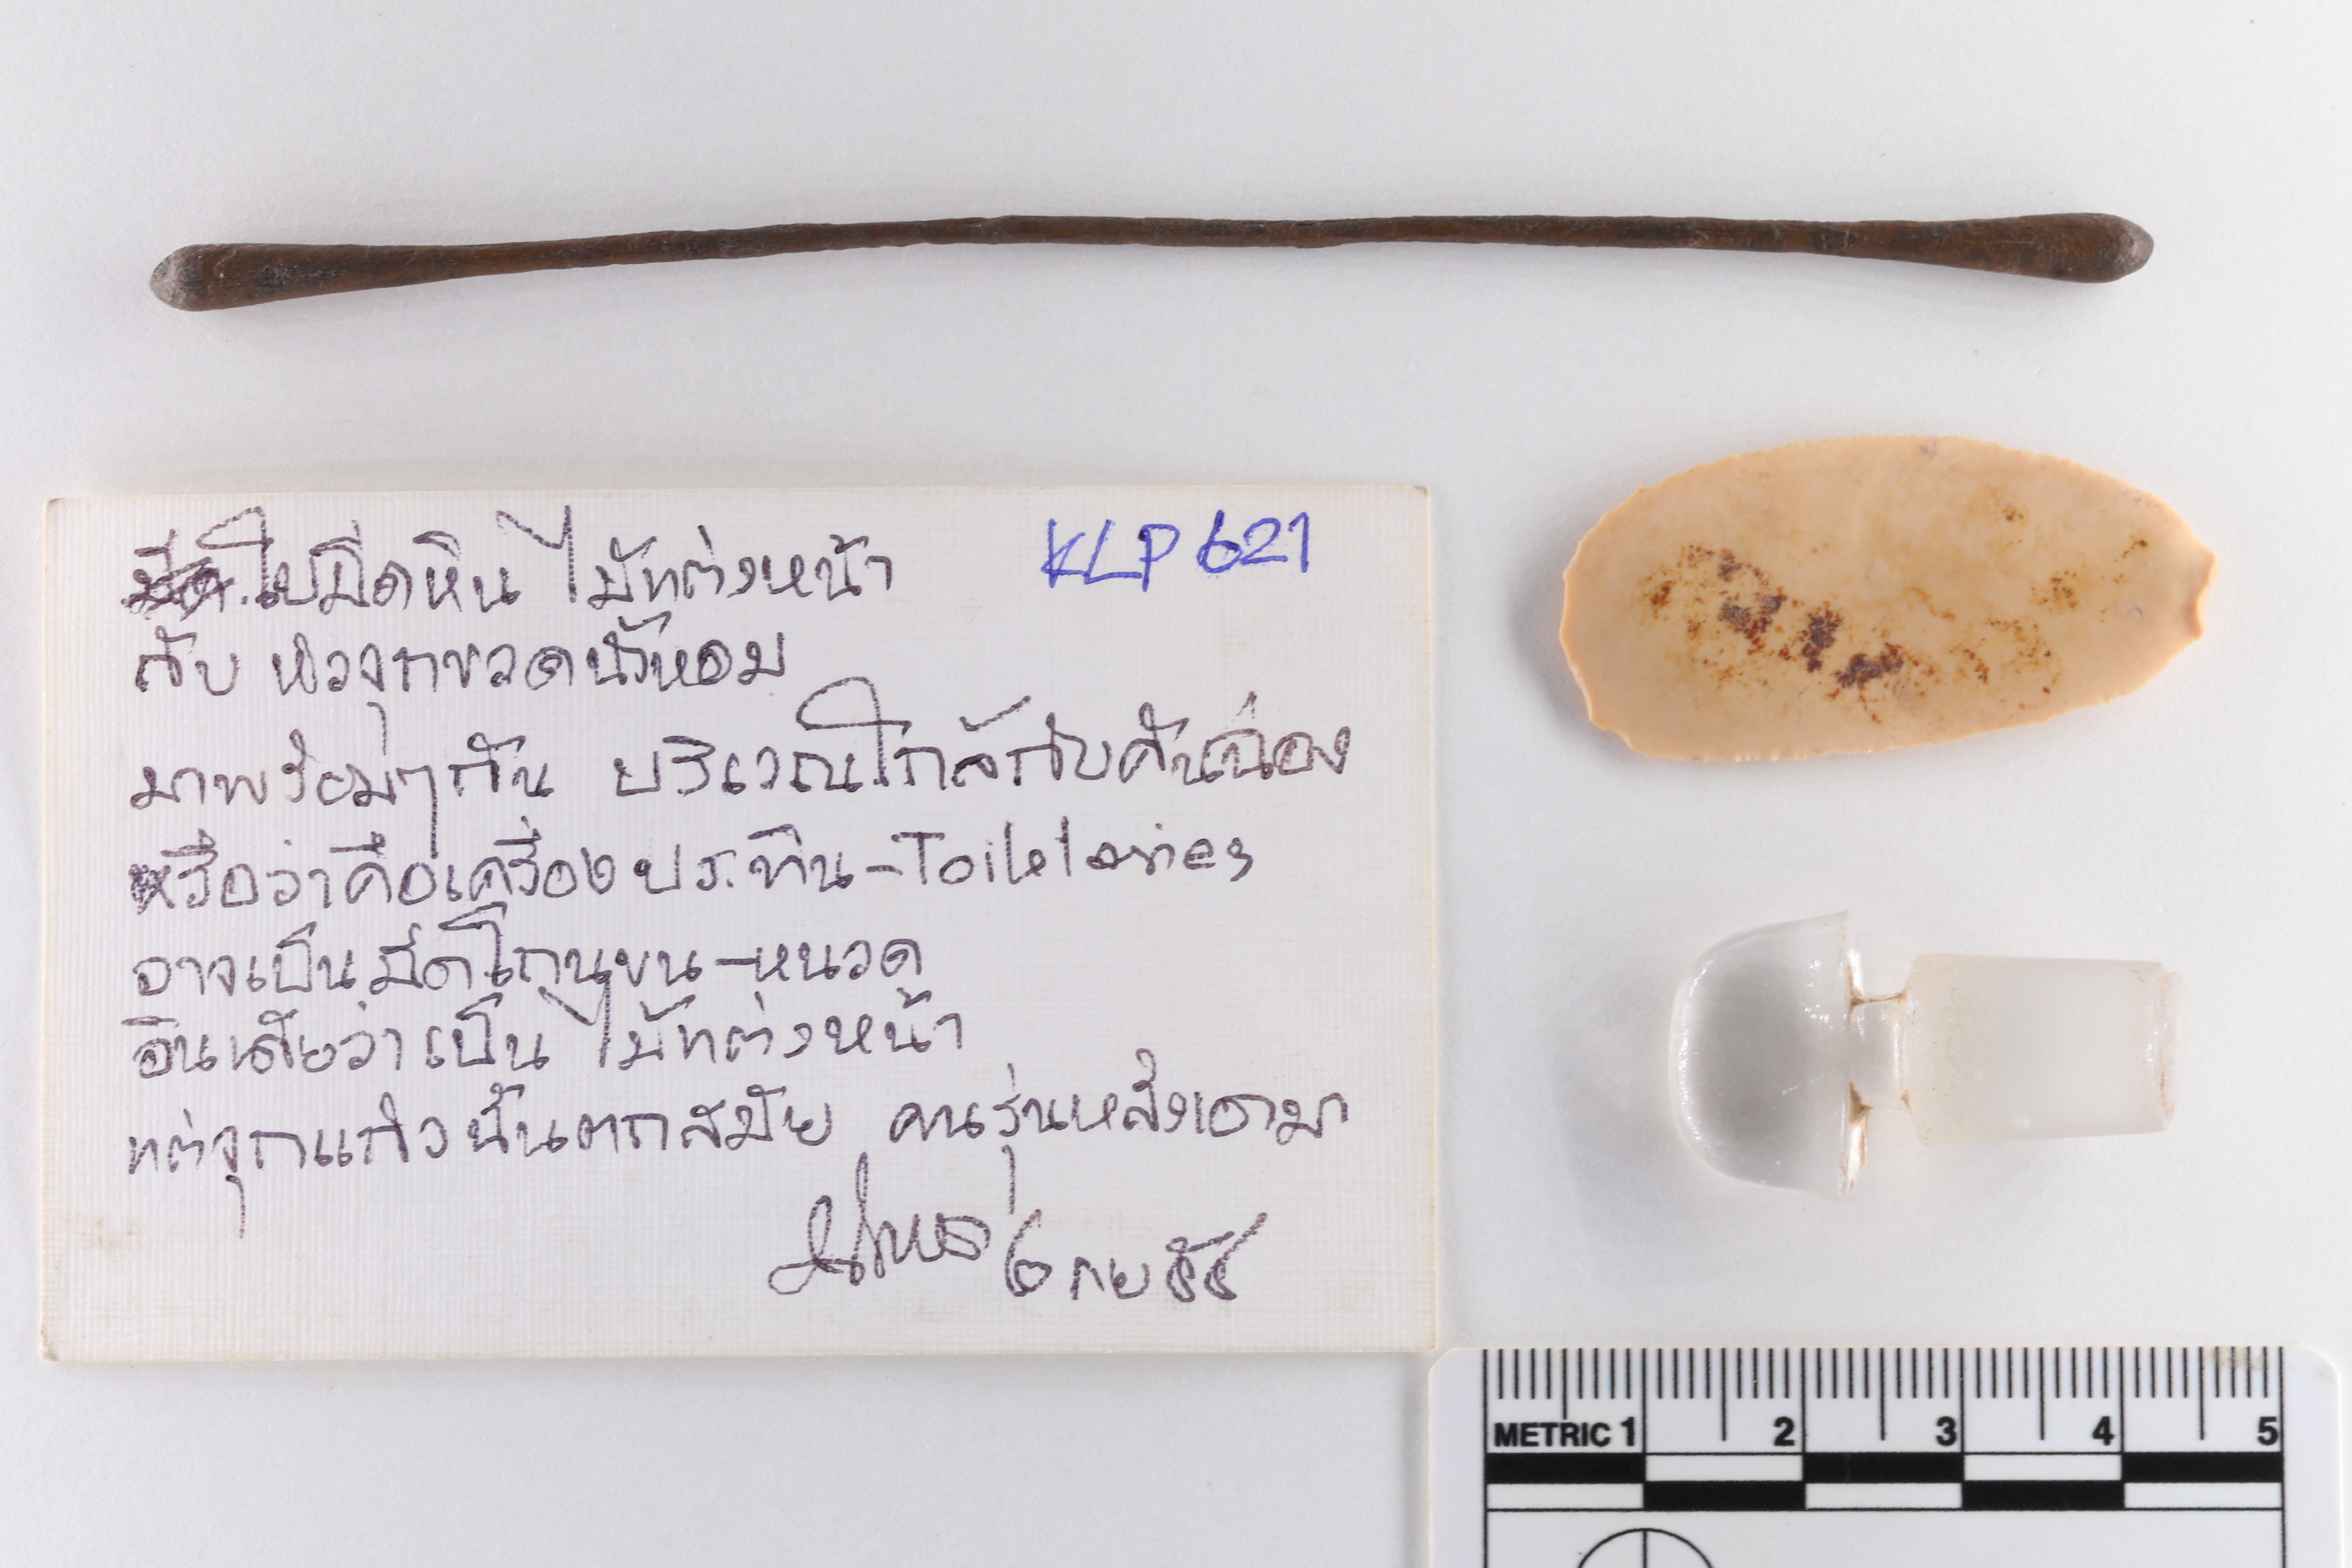 ใบมีดหิน ไม้แต่งหน้า KLP 621
กับ หัวจุกขวดน้ำหอม
มาพร้อมๆกัน บริเวณใกล้กับคันฉ่อง
หรือว่าคือเครื่องประทิน-Toiletories
อาจเป็นมีดโกนขน-หนวด
อินเดียว่าเป็น ไม้แต่งหน้า
แต่จุกแก้วนั้นตกสมัย คนรุ่นหลังเอามา
๖ กย ๕๕
METRIC 1 2 3 4 5